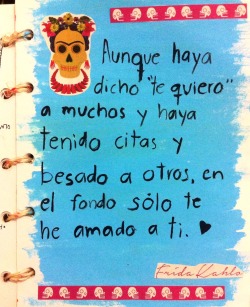 Aunque haya
dicho "te quiero"
a muchos y haya
tenido citas y
besado a otros, en
el fondo sólo te
he amado a ti.
Frida Kahlo